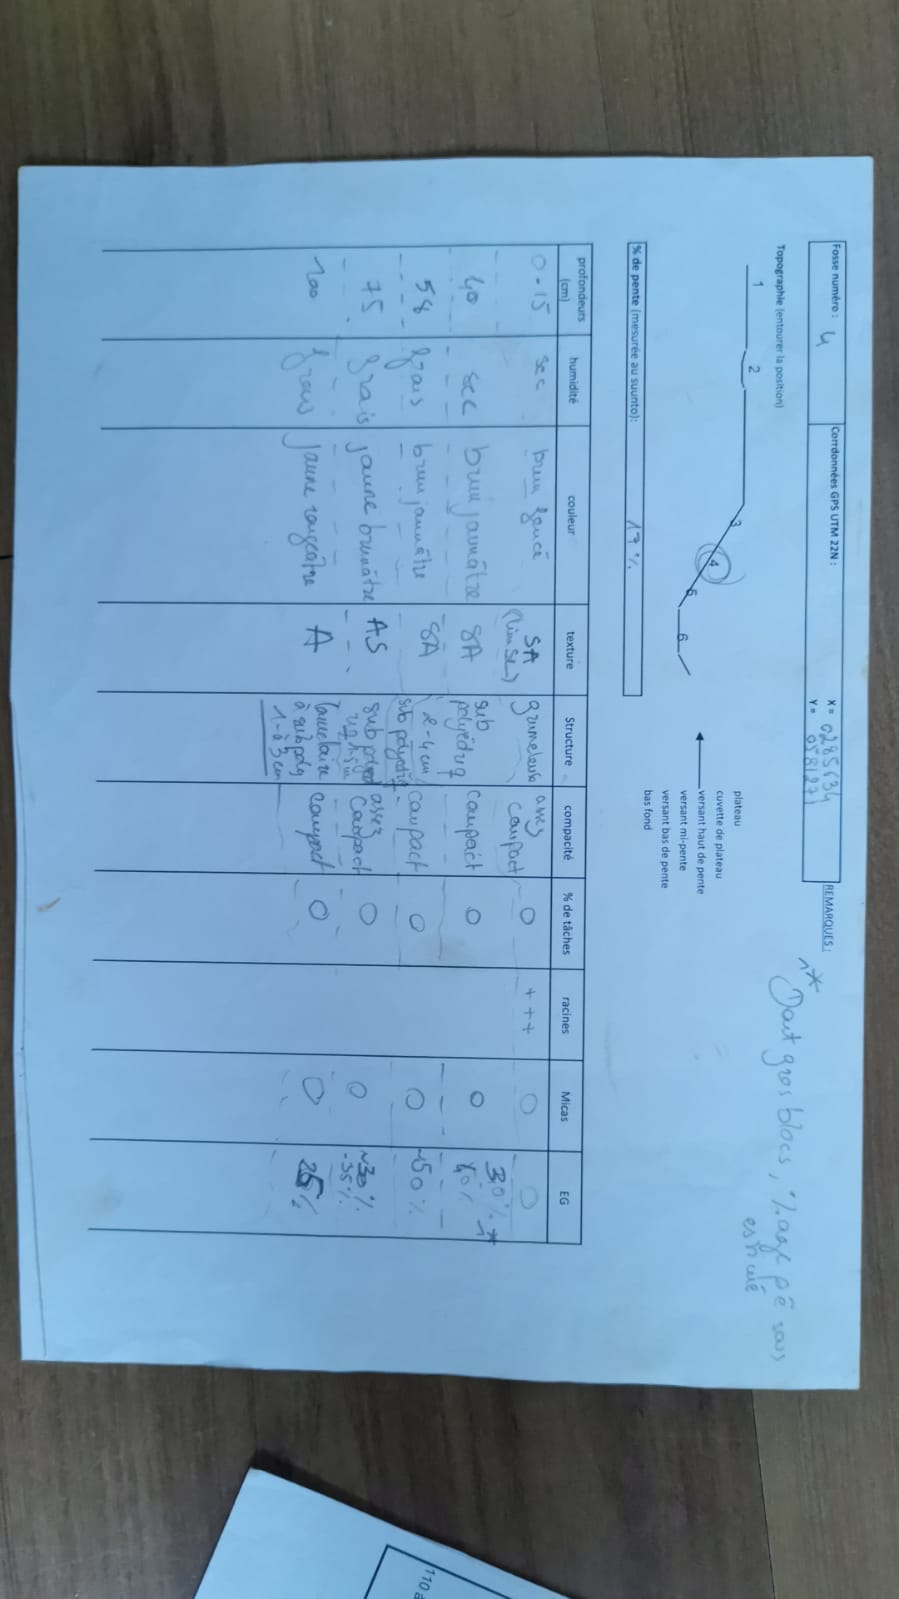 Fosse numéro : 4
Corrdonnées GPS UTM 22N :
X = 0285634
Y = 0581271
REMARQUES :
* Dont gros blocs, %age pê sous
estimé
Topographie (entourer la position)
1 2 3 4 5 6
plateau
cuvette de plateau
versant haut de pente
versant mi-pente
versant bas de pente
bas fond
% de pente (mesurée au suunto): 17 %
profondeurs (cm) humidité couleur texture Structure compacité % de tâches racines Micas EG
0-15 sec brun foncé SA (lim SL) grumeleuse assez compact O +++ O O
40 sec brun jaunâtre SA sub polyédrq compact O O 30% * 40%
58 frais brun jaunâtre SA 2-4 cm sub polyédriq compact O O ~50 %
75 frais jaune brunâtre AS sub polyed assez compact O O ~30 % -35 %
100 frais jaune rougeâtre A lamelaire à sub polq 1-à 3 cm compact O O 25 %
110